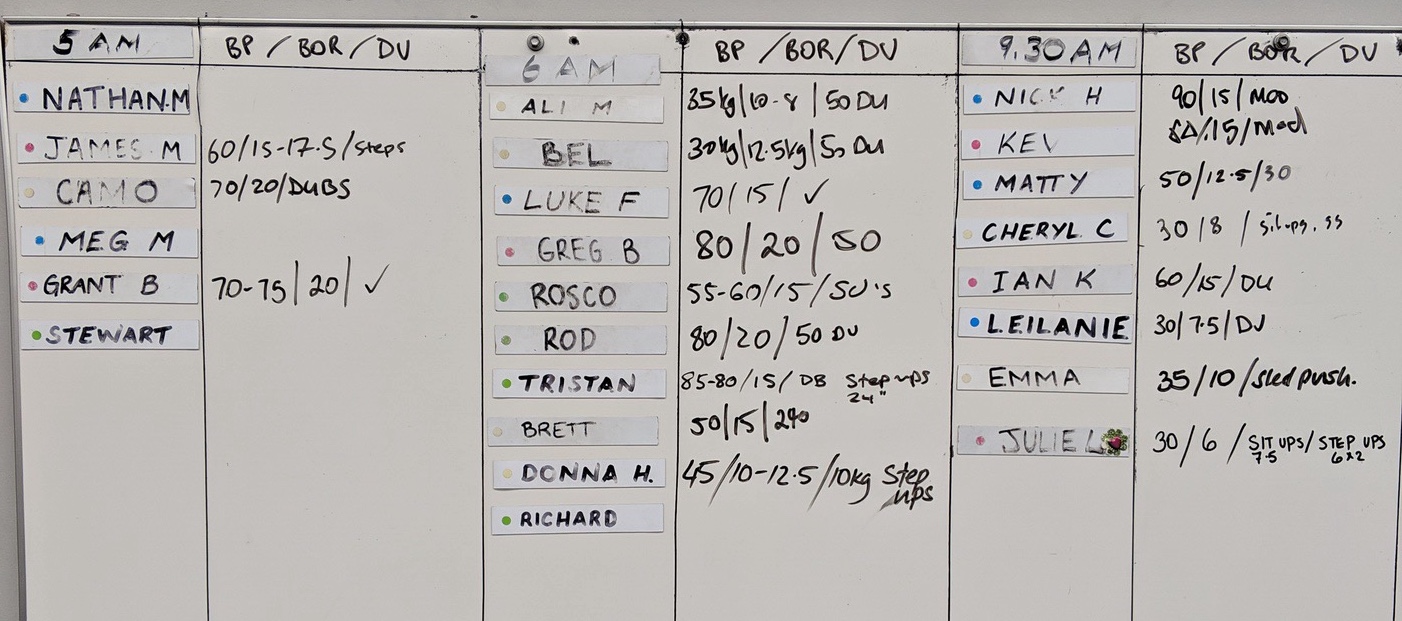 5 AM
BP / BOR / DU
NATHAN.M
JAMES M 60/15-17.5/steps
CAMO 70/20/DUBS
MEG M
GRANT B 70-75/20/✓
STEWART
6 AM
BP / BOR / DU
ALI M 35kg/10-8/50 DU
BEL 30kg/12.5kg/50 DU
LUKE F 70/15/✓
GREG B 80/20/50
ROSCO 55-60/15/SU's
ROD 80/20/50 DU
TRISTAN 85-80/15/DB Step ups
24"
BRETT 50/15/240
DONNA H. 45/10-12.5/10kg Step
ups
RICHARD
9.30 AM
BP / BOR / DU
NICK H 90/15/Mod
KEV /15/Mod
MATTY 50/12.5/30
CHERYL C 30/8 / Sit-ups, SS
IAN K 60/15/DU
LEILANIE 30/7.5/DU
EMMA 35/10/sled push.
JULIE L 30/6/SIT UPS/STEP UPS
7.5 6x2